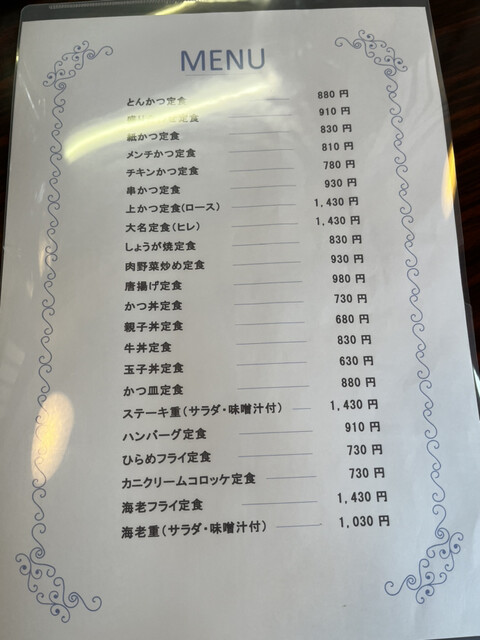 MENU
とんかつ定食 880 円
定食 910 円
紙かつ定食 830 円
メンチかつ定食 810 円
チキンかつ定食 780 円
串かつ定食 930 円
上かつ定食(ロース) 1,430 円
大名定食(ヒレ) 1,430 円
しょうが焼定食 830 円
肉野菜炒め定食 930 円
唐揚げ定食 980 円
かつ丼定食 730 円
親子丼定食 680 円
牛丼定食 830 円
玉子丼定食 630 円
かつ皿定食 880 円
ステーキ重(サラダ・味噌汁付) 1,430 円
ハンバーグ定食 910 円
ひらめフライ定食 730 円
カニクリームコロッケ定食 730 円
海老フライ定食 1,430 円
海老重(サラダ・味噌汁付) 1,030 円